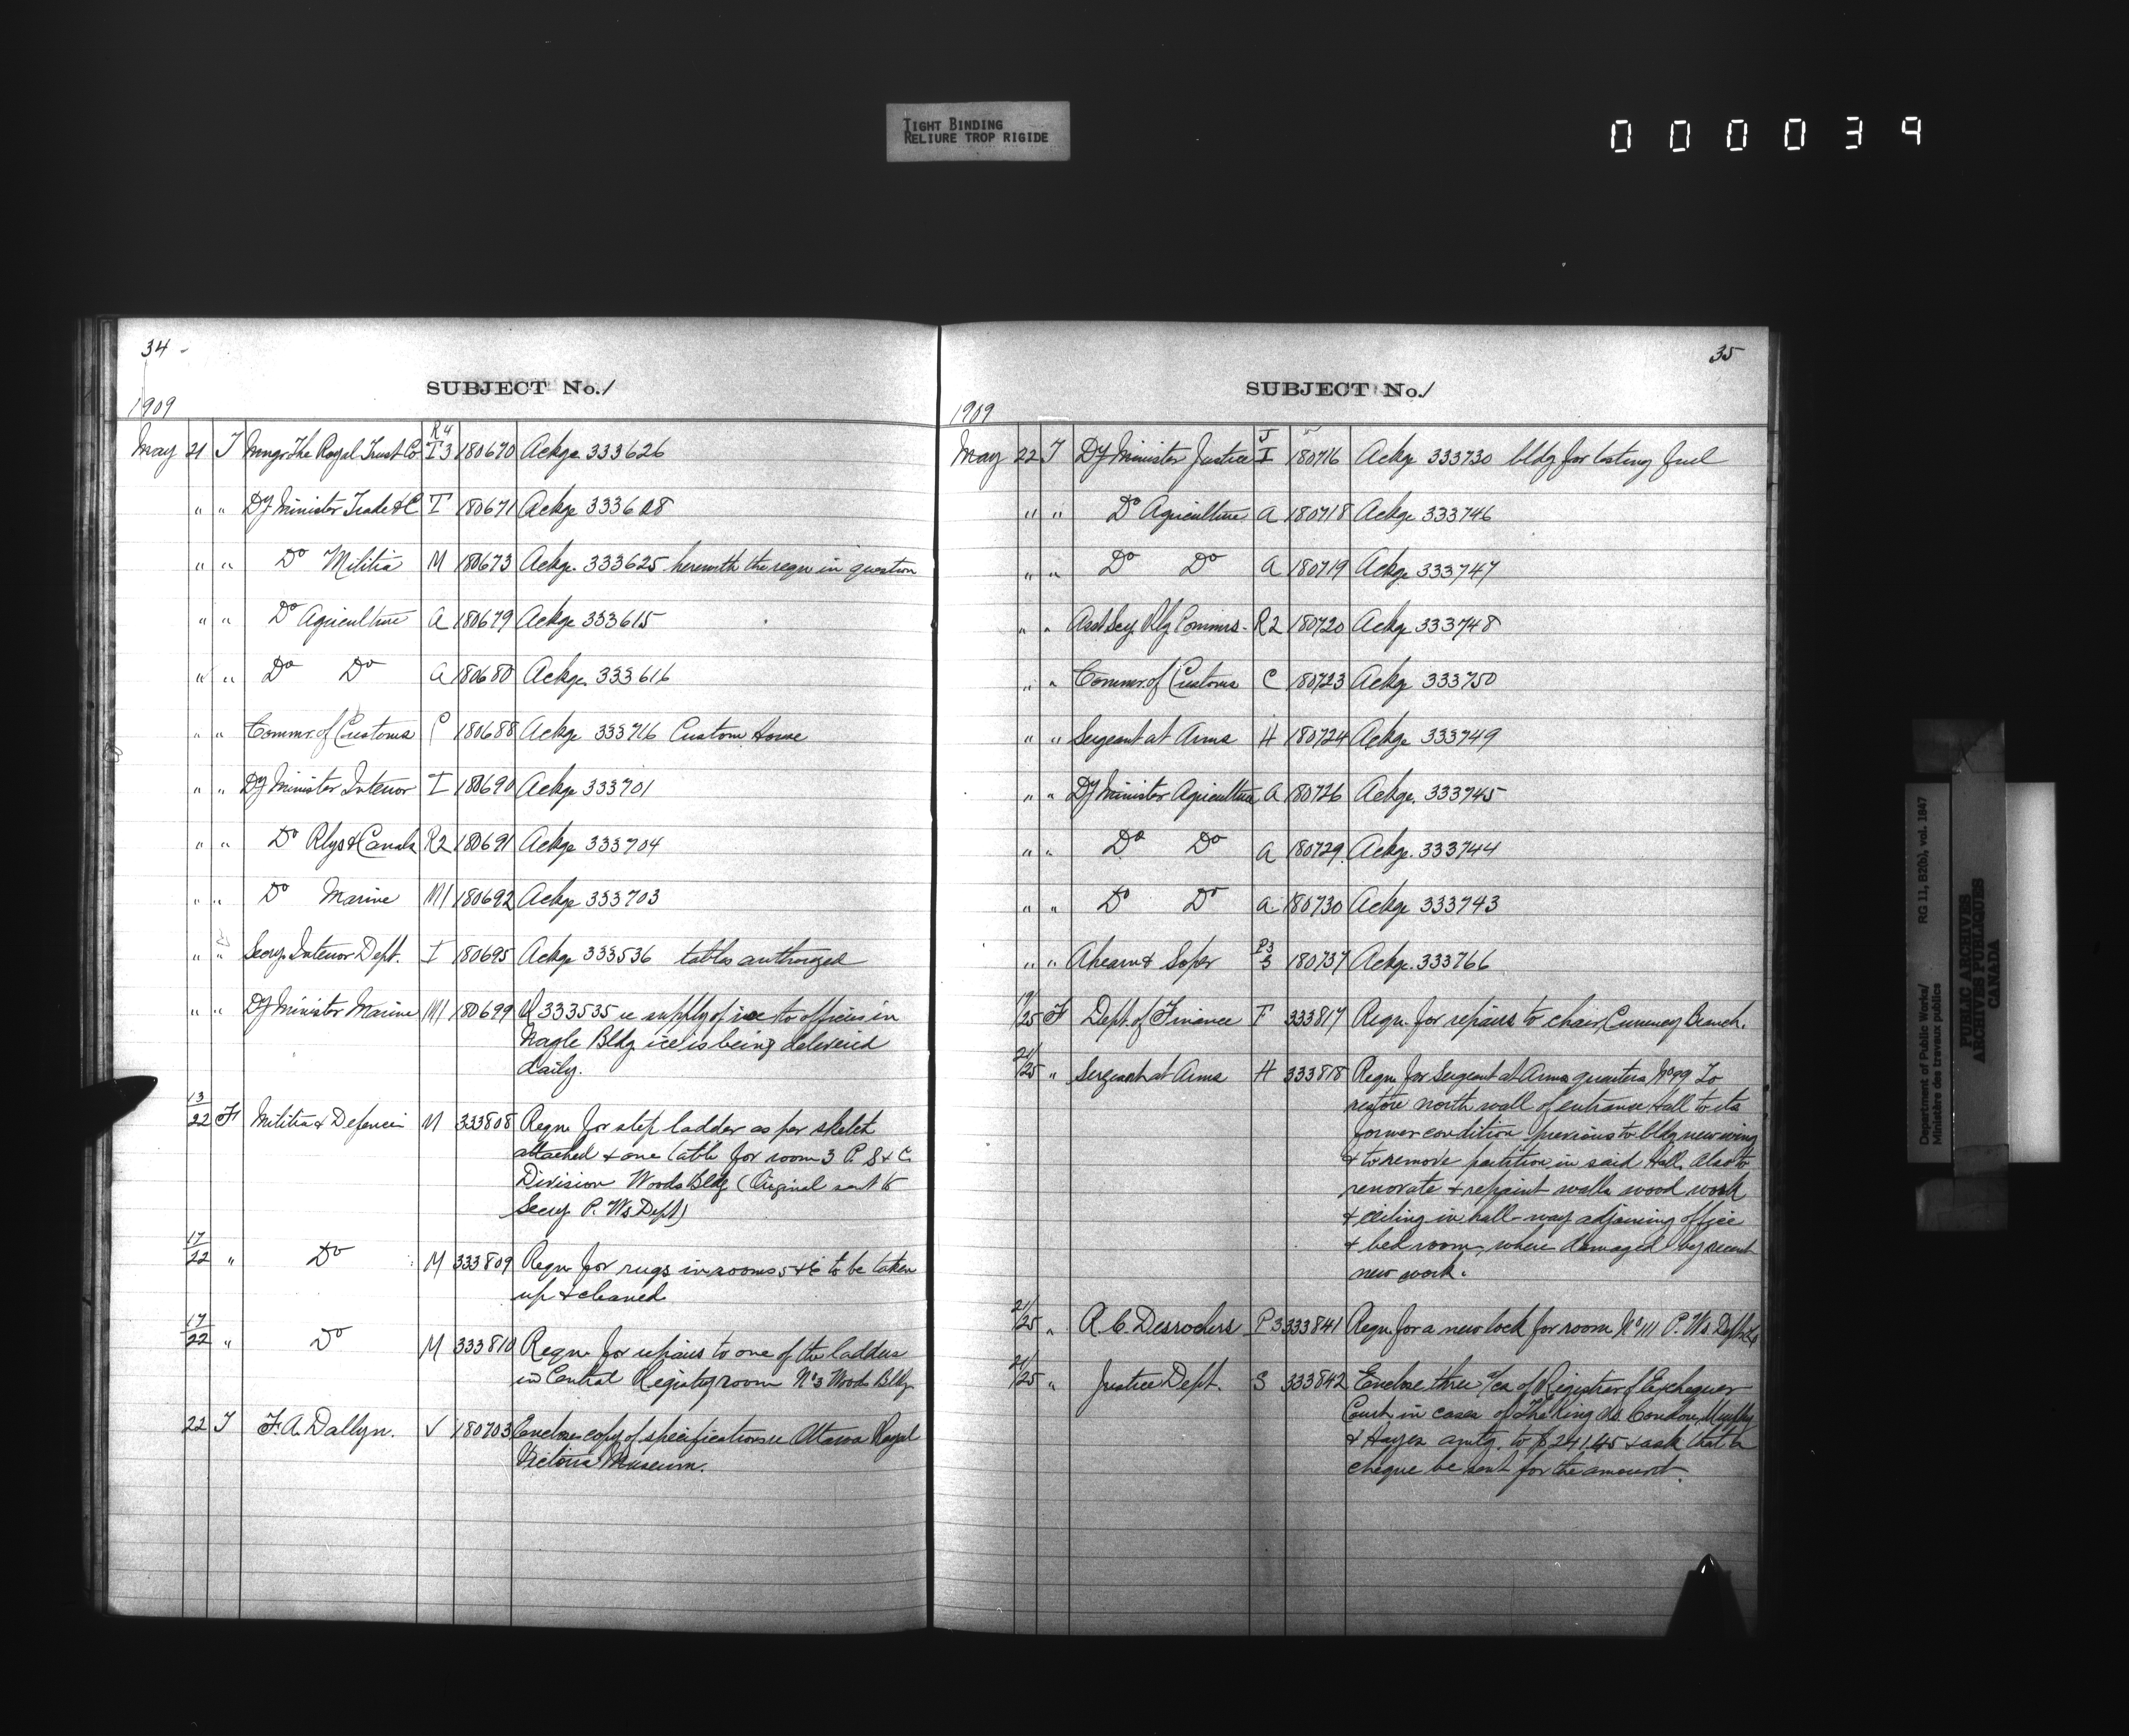 TIGHT BINDING
RELIURE TROP RIGIDE
000039
34 -
SUBJECT No./
1909
May 21 T Mngr The Royal Trust Co R4 T3 180670 Ackge 333626
" " Dy Minister Trade & C T 180671 Ackge 333628
" " Do Militia M 180673 Ackge. 333625 herewith the reqn in question
" " Do Agriculture A 180679 Ackge 333615
" " Do Do A 180680 Ackge. 333616
" " Commr. of Customs C 180688 Ackge 333716 Custom House
" " Dy Minister Interior I 180690 Ackge 333701
" " Do Rlys & Canals R2 180691 Ackge 333704
" " Do Marine M1 180692 Ackge 333703
" " Secy. Interior Dept. I 180695 Ackge 333536 tables authorized
" " Dy Minister Marine M1 180699 R 333535 re supply of ice to offices in
Nagle Bldg ice is being delivered
daily.
13/22 F Militia & Defence M 333808 Reqn for step ladder as per sketch
attached & one table for room 3 P. S & C.
Division Woods Bldg (Original sent to
Secy. P. Ws Dept)
17/22 " Do M 333809 Reqn for rugs in rooms 5 & 6 to be taken
up & cleaned
17/22 " Do M 333810 Reqn for repairs to one of the ladders
in Central Registry room No 3 Woods Bldg.
22 T F. A. Dallyn. V 180703 Enclose copy of specifications re Ottawa Royal
Victoria Museum.
35
SUBJECT No./
1909
May 22 T Dy Minister Justice J I 180716 Ackge 333730 bldg for testing fuel
" " Do Agriculture A 180718 Ackge 333746
" " Do Do A 180719 Ackge 333747
" " Asst Secy. Rly Commrs - R2 180720 Ackge 333748
" " Commr. of Customs C 180723 Ackge 333750
" " Sergeant at Arms H 180724 Ackge 333749
" " Dy Minister Agriculture A 180726 Ackge. 333745
" " Do Do A 180729 Ackge. 333744
" " Do Do A 180730 Ackge 333743
" " Ahearn & Soper P3 S 180737 Ackge. 333766
19/25 F Dept. of Finance F 333817 Reqn. for repairs to chair, Currency Branch.
21/25 " Sergeant at Arms H 333818 Reqn for Sergeant at Arms quarters, No 99 To
restore north wall of entrance Hall to its
former condition previous to bldg new wing
& to remove partition in said Hall. Also to
renovate & repaint walls wood work
& ceiling in hall-way adjoining office
& bed room, where damaged by recent
new work.
21/25 " A. C. Desrochers P3 333841 Reqn for a new lock for room No 111 P. Ws. Dept
21/25 " Justice Dept. S 333842 Enclose three a/cs of Registrar of Exchequer
Court in cases of The King vs. Condon, Murphy
& Hayes amtg. to $241.45 & ask that a
cheque be sent for the amount.
Department of Public Works/ RG 11, B2(b), vol. 1847
Ministère des travaux publics
PUBLIC ARCHIVES
ARCHIVES PUBLIQUES
CANADA